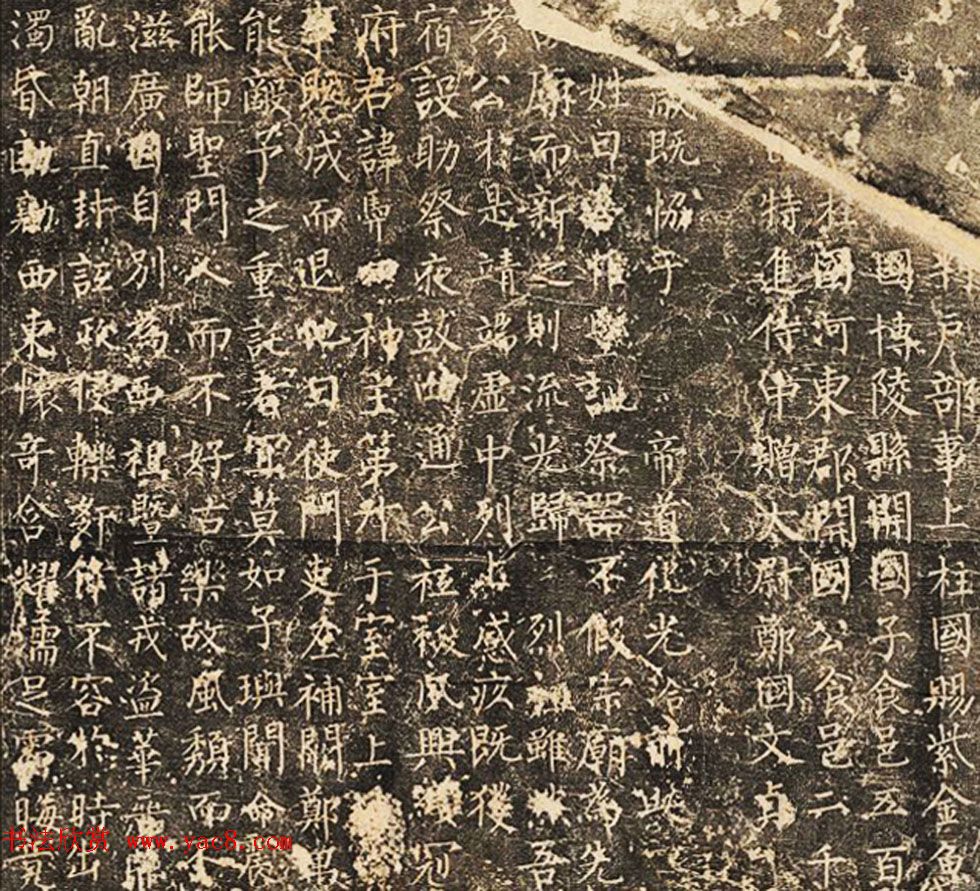 户部事上柱國賜紫金魚
國博陵縣開國子食邑五百
柱國河東郡開國公食邑二千
特進侍中贈太尉鄭國文貞
歲既協于 帝道化光洽前此
姓曰 惟豐誠祭器不假宗廟為先
廟而新之則流光歸 烈祖雖 吾
考公於是靖端虛中列占感疚既獲
宿設助祭夜鼓曲通公祗祓夙興 冠
府君諱 神坐第升于室室上
事既成而退他日使門吏左補闕鄭愚
能敵予之重託者寔莫如子璵聞命
能師聖門人而不好古樂故風頹而不
滋廣因自別為西祖暨諸戎盜華
亂朝直封 欺侵轢 不容於時出
濁昏 西東懷奇含耀濡足需晦
书法欣赏 www.yac8.com